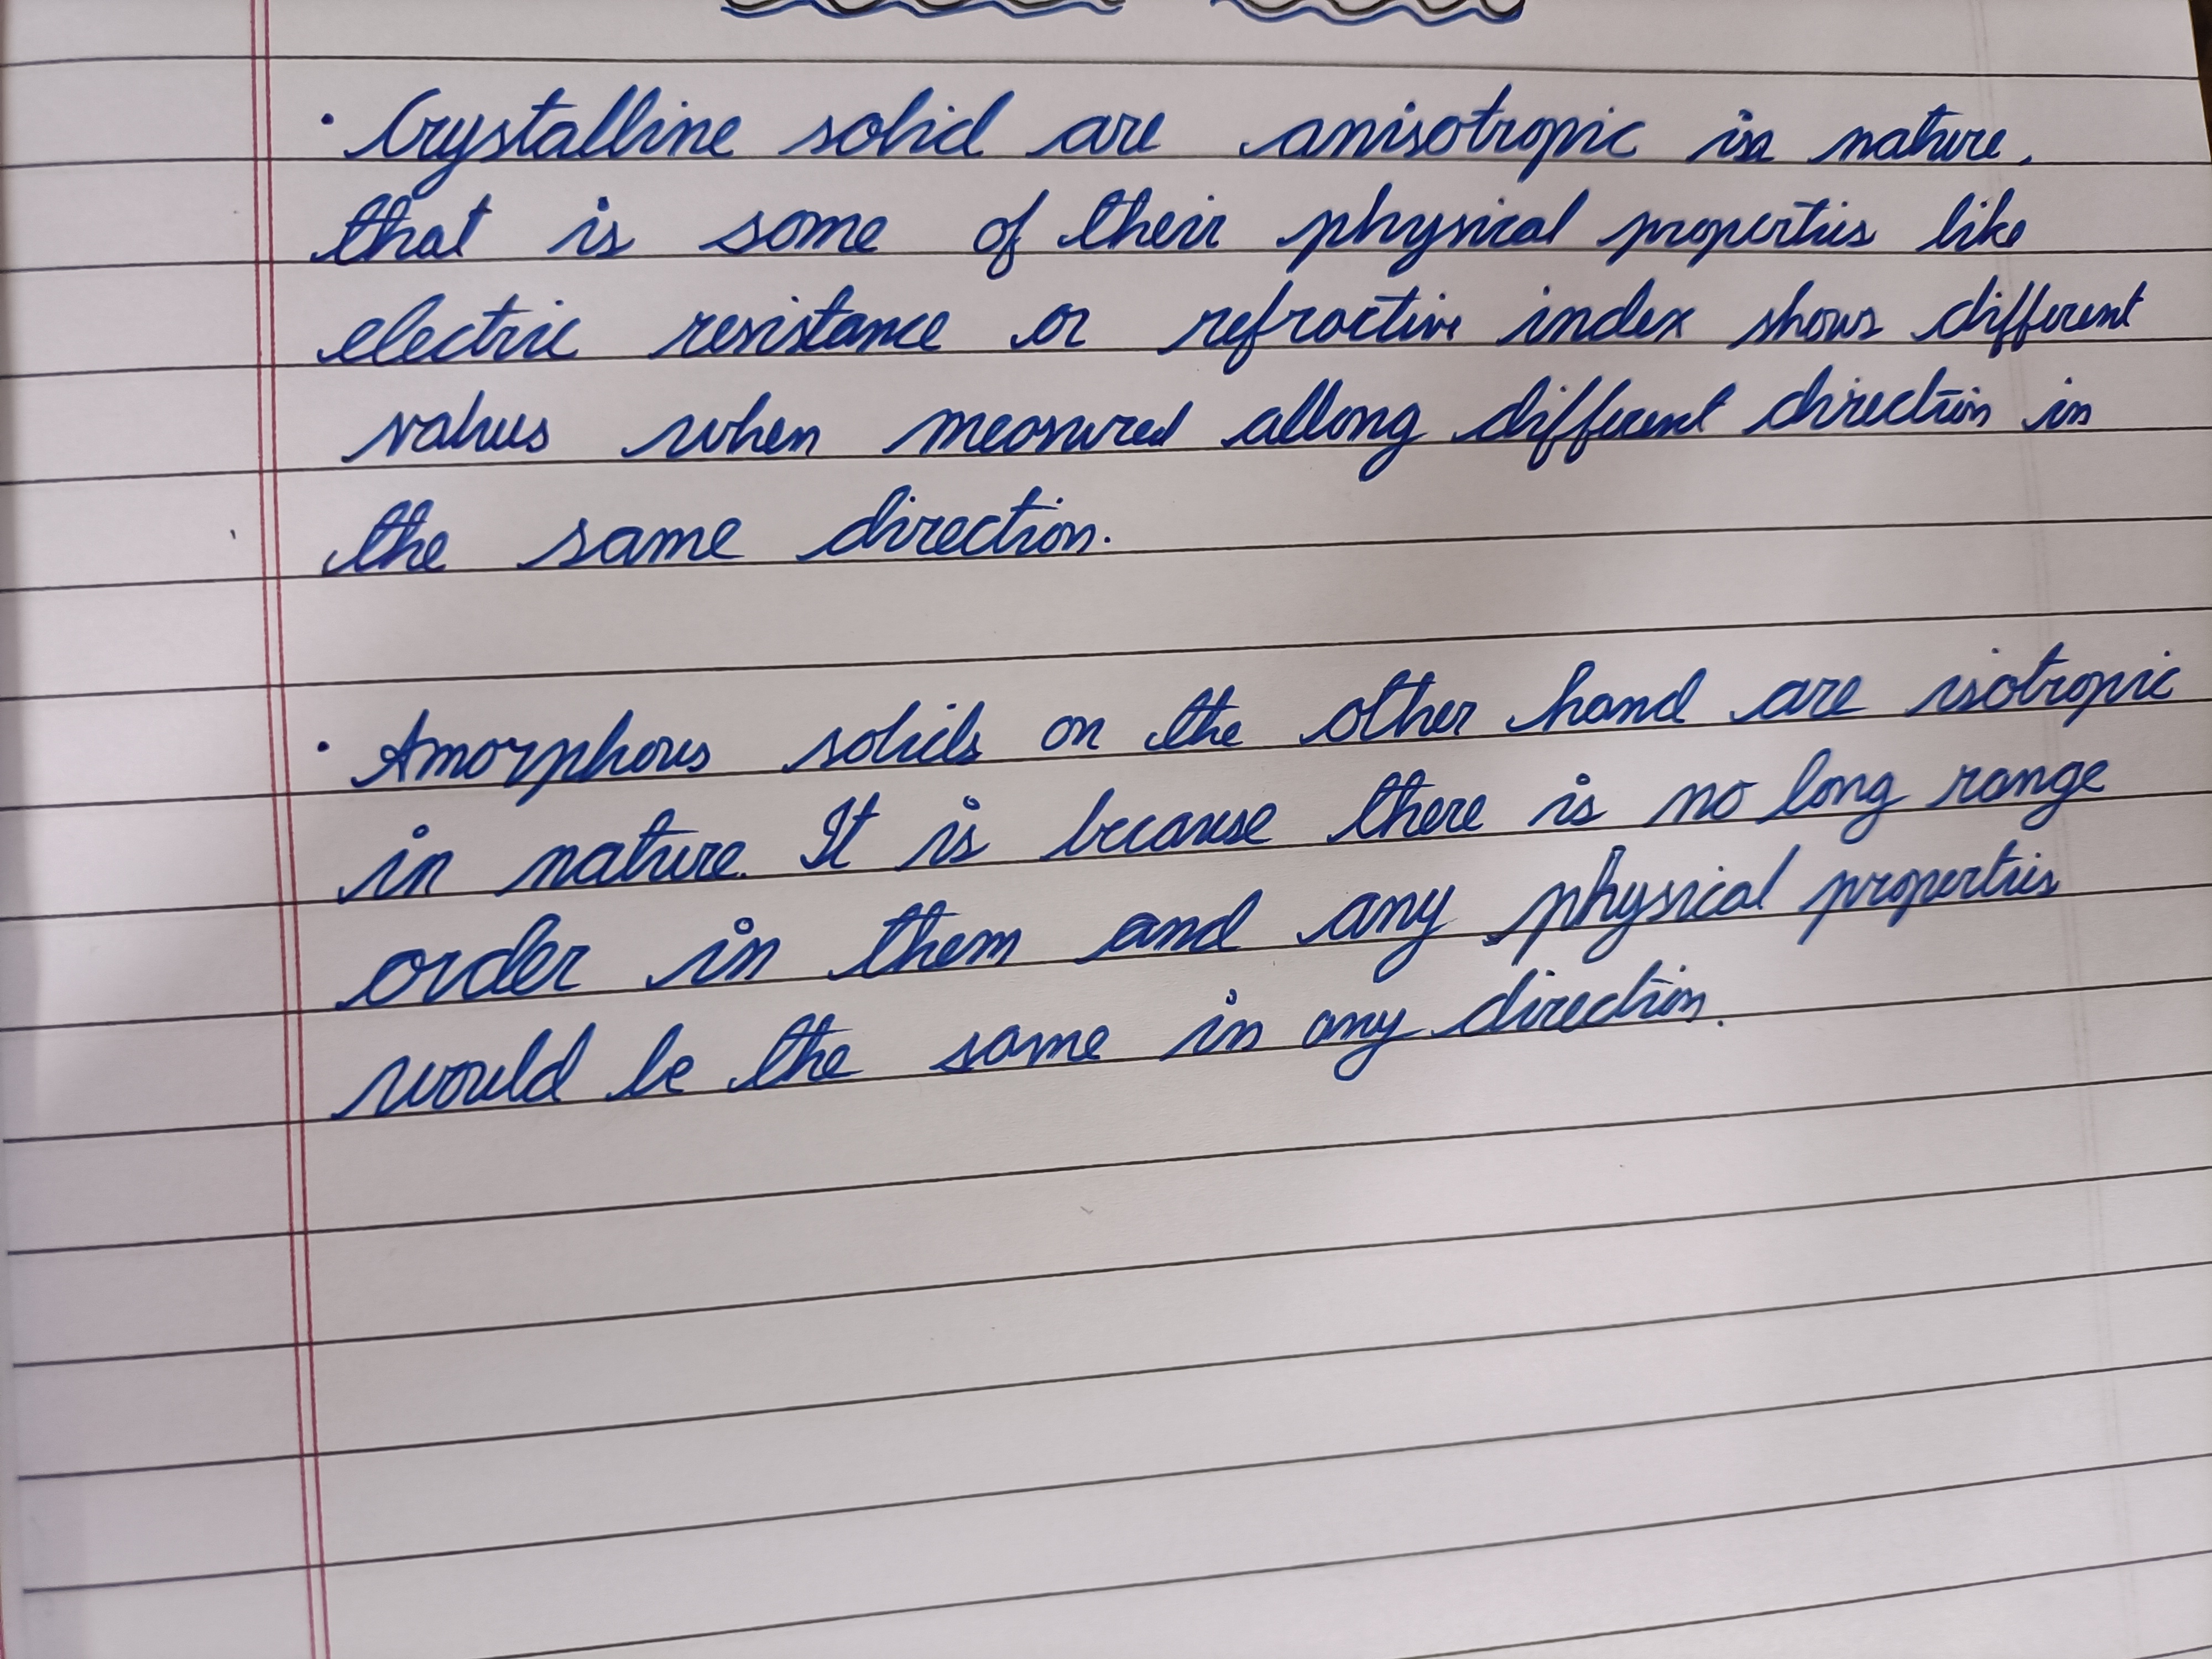 · Crystalline solid are anisotropic in nature,
that is some of their physical properties like
electric resistance or refractive index shows different
values when measured allong different direction in
the same direction.
· Amorphous solids on the other hand are isotropic
in nature. It is because there is no long range
order in them and any physical properties
would be the same in any direction.